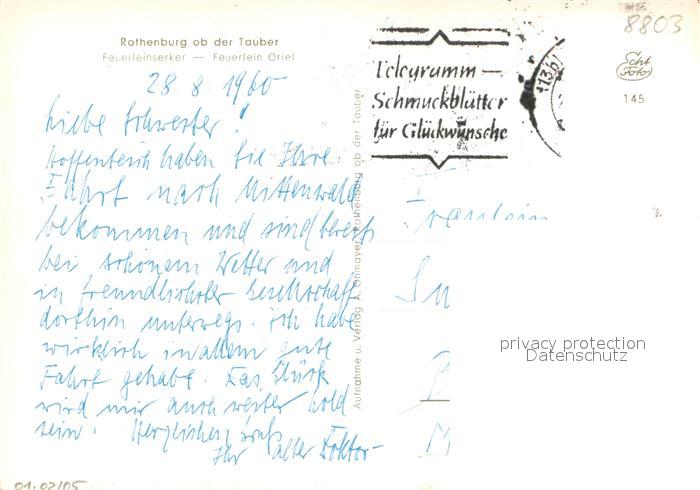 8803
Rothenburg ob der Tauber
Feuerleinserker — Feuerlein Oriel
28 8. 1960
Telegramm —
Schmuckblätter
für Glückwünsche
Echt
Foto
145
Liebe Schwester!
Hoffentlich haben Sie Ihre
Fahrt nach Mittenwald
bekommen und sind bereits
bei schönem Wetter und
in freundlichster Gesellschaft
dorthin unterwegs. Ich habe
wirklich in allem gute
Fahrt gehabt. Das Glück
wird mir auch weiter hold
sein. Herzlichen Gruß
Ihr alter Doktor-
Aufnahme u. Verlag A. Ohmayer, Rothenburg ob der Tauber
Fräulein
privacy protection
Datenschutz
01.02/05